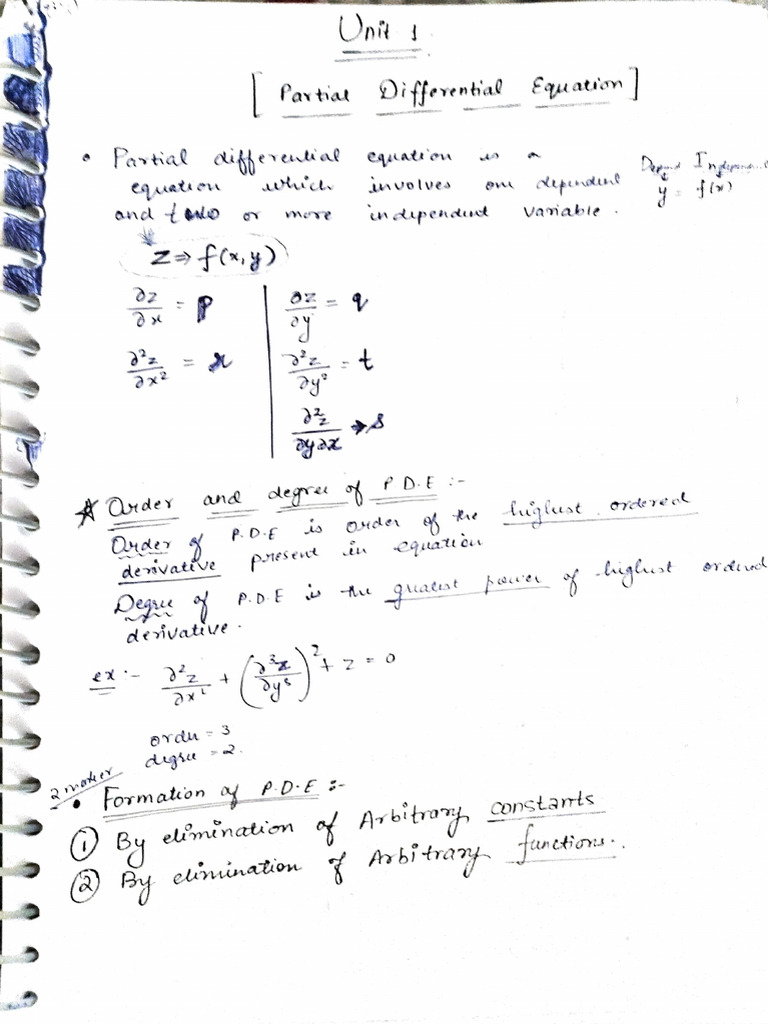 Unit 1
[ Partial Differential Equation ]
• Partial differential equation is a
equation which involves one dependent
and two or more independent variable.
y = f(x)
z ⇒ f(x, y)
∂z/∂x = p
∂z/∂y = q
∂²z/∂x² = r
∂²z/∂y² = t
∂²z/∂y∂x → s
* Order and degree of P.D.E :-
Order of P.D.E is order of the highest ordered
derivative present in equation
Degree of P.D.E is the greatest power of highest ordered
derivative.
ex :- ∂²z/∂x² + (∂³z/∂y³)² + z = 0
order = 3
degree = 2.
2 marker
• Formation of P.D.E :-
① By elimination of Arbitrary constants
② By elimination of Arbitrary functions.